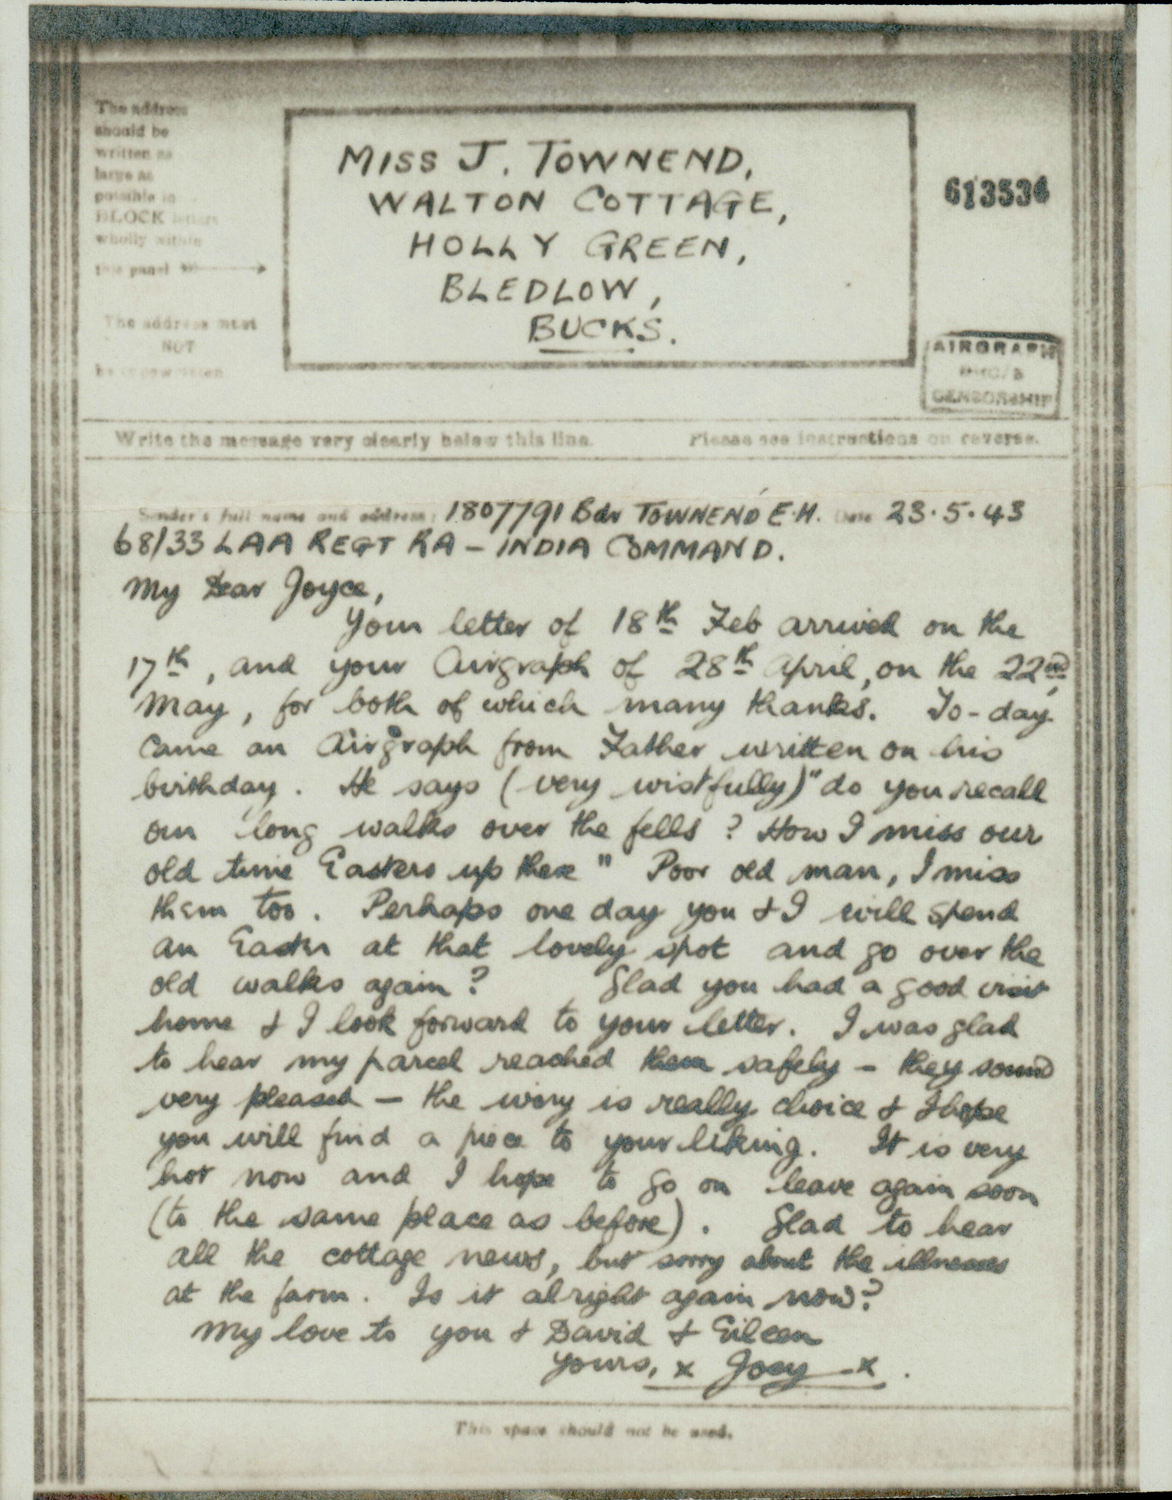 The address
should be
written as
large as
possible in
BLOCK letters
wholly within
this panel
The address must
NOT
be typewritten
MISS J. TOWNEND,
WALTON COTTAGE,
HOLLY GREEN,
BLEDLOW,
BUCKS.
613534
AIRGRAPH
CENSORSHIP
Write the message very clearly below this line. Please see instructions on reverse.
Sender's full name and address: 1807791 Bdr TOWNEND E.H. Date 23.5.43
68/33 LAA REGT RA - INDIA COMMAND.
My Dear Joyce,
Your letter of 18th Feb arrived on the
17th, and your Airgraph of 28th April, on the 22nd
May, for both of which many thanks. To-day
came an Airgraph from Father written on his
birthday. He says (very wistfully) "do you recall
our long walks over the fells? How I miss our
old time Easters up there" Poor old man, I miss
them too. Perhaps one day you & I will spend
an Easter at that lovely spot and go over the
old walks again? Glad you had a good visit
home & I look forward to your letter. I was glad
to hear my parcel reached them safely - they sound
very pleased - the ivory is really choice & I hope
you will find a piece to your liking. It is very
hot now and I hope to go on leave again soon
(to the same place as before). Glad to hear
all the cottage news, but sorry about the illnesses
at the farm. Is it alright again now?
My love to you & David & Eileen
Yours, x Joey x.
This space should not be used.